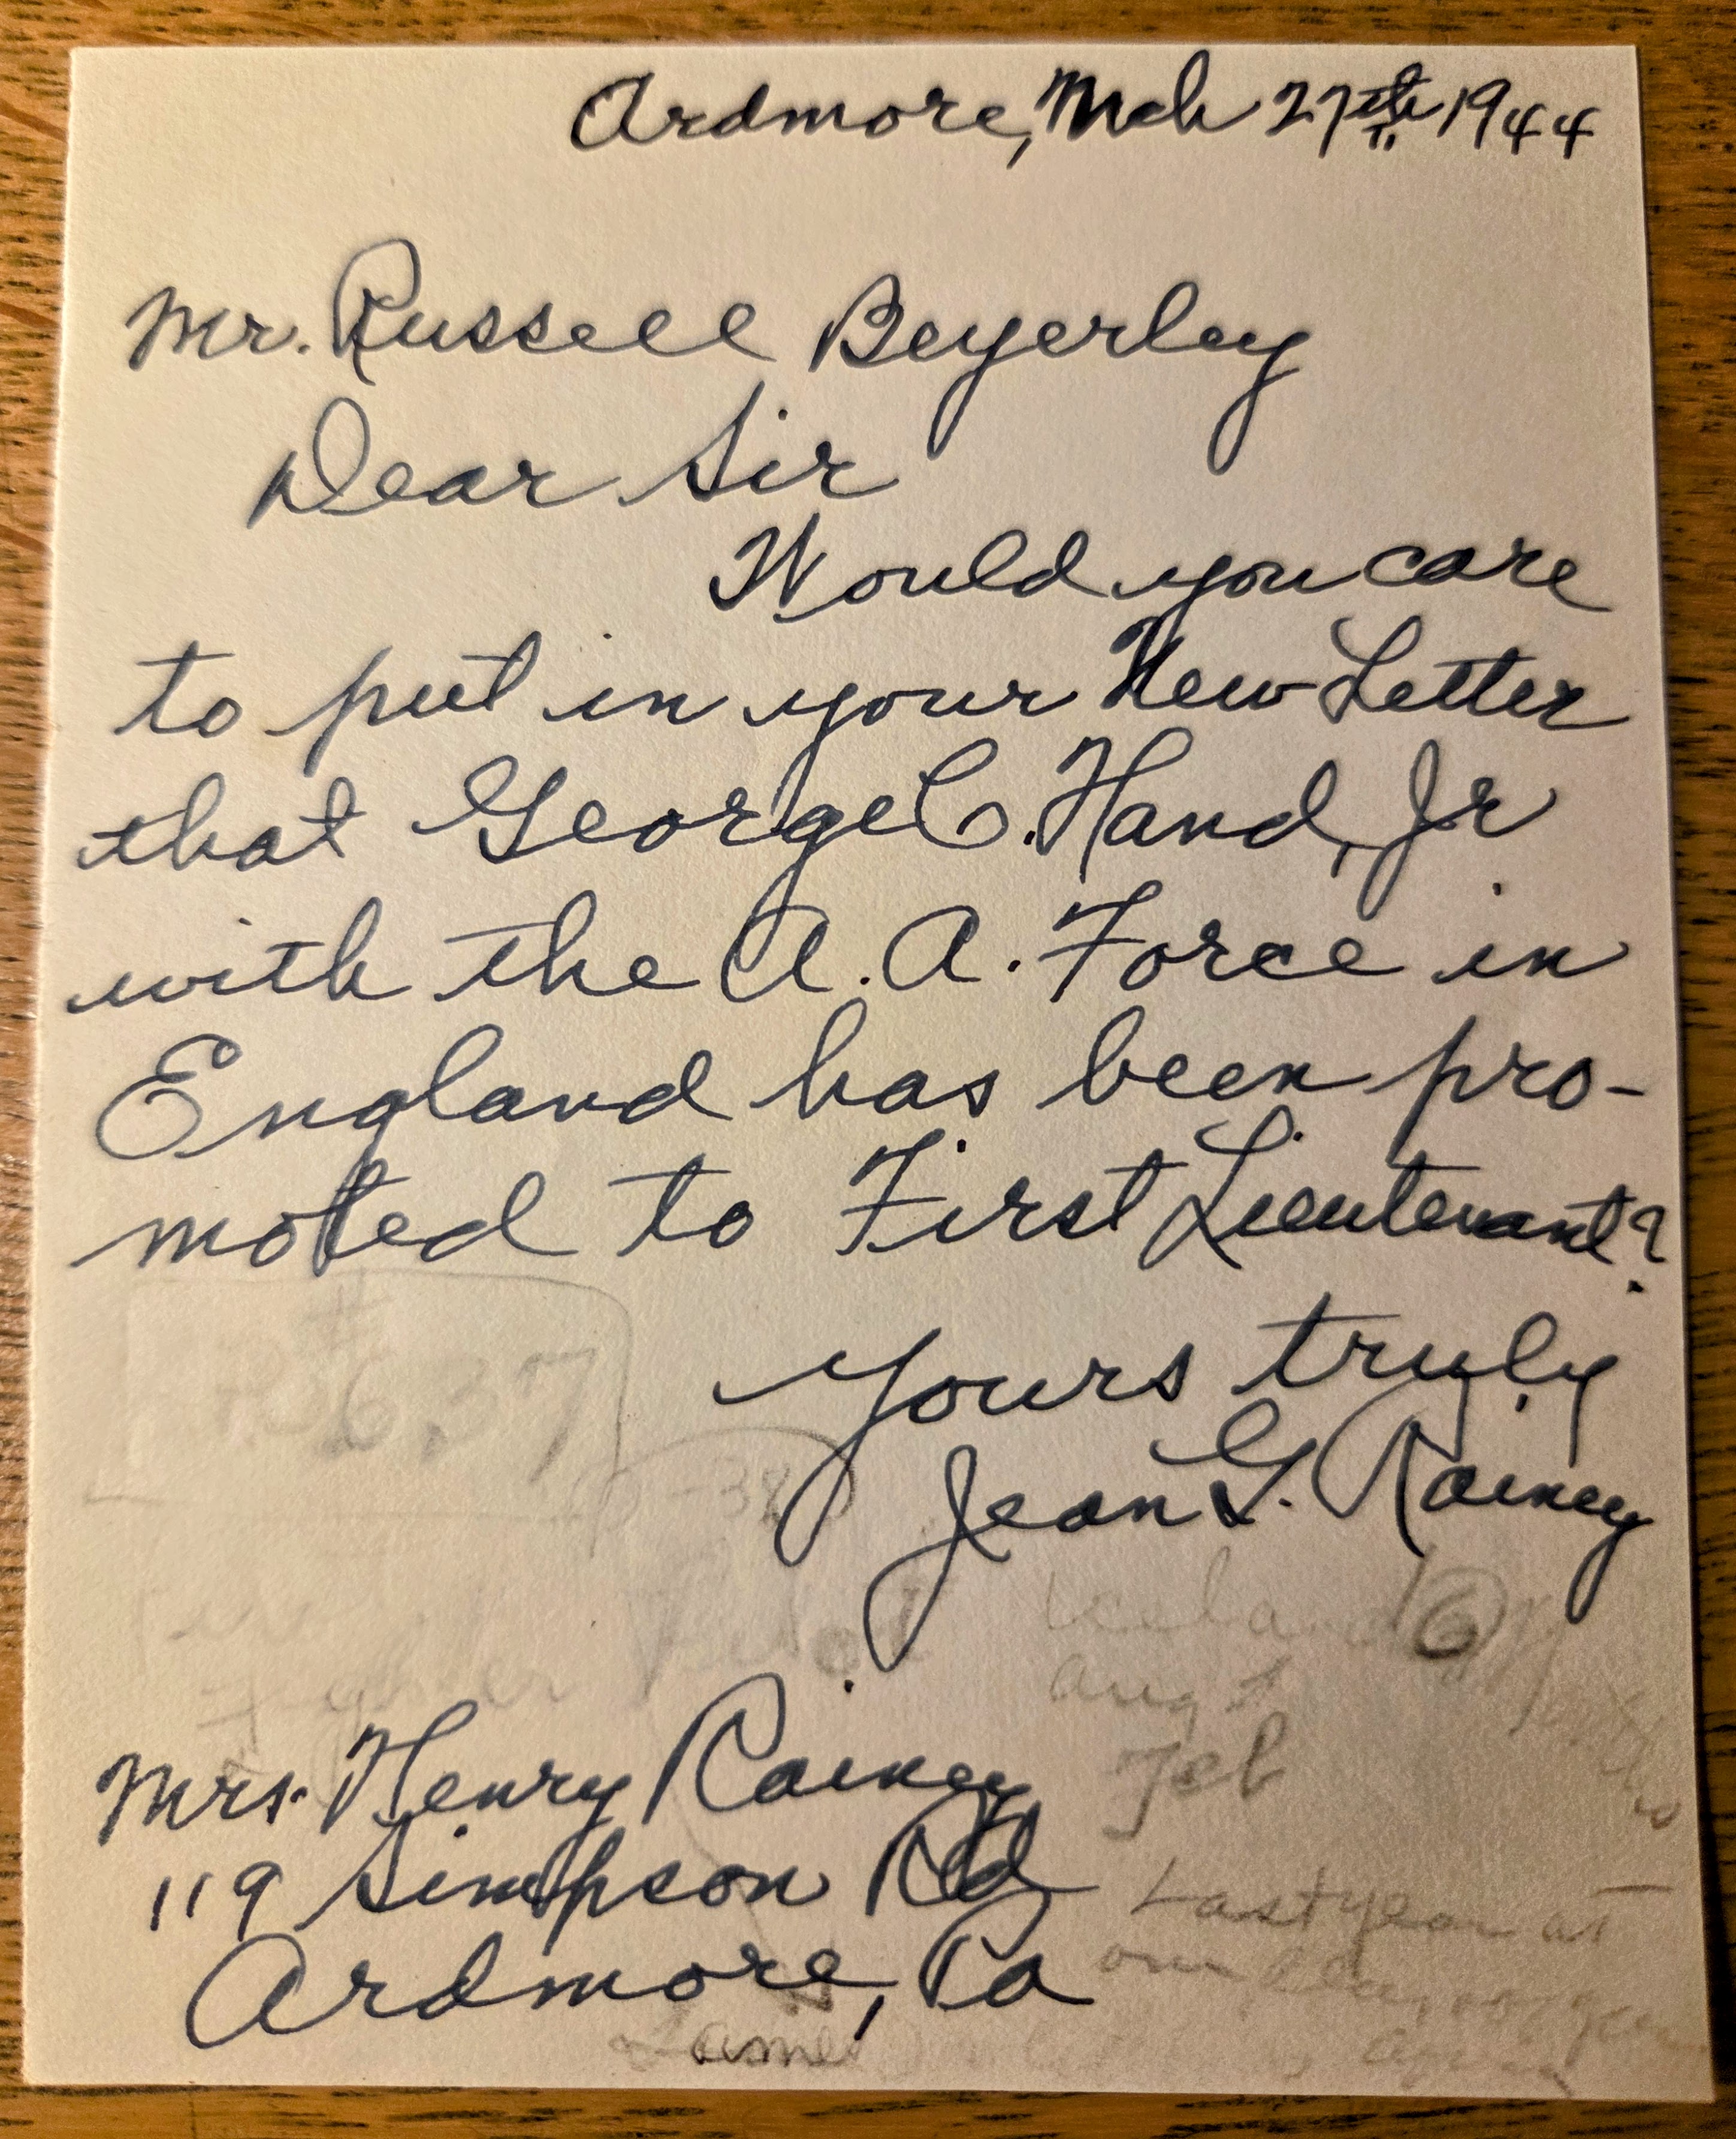 Ardmore, Mch 27th 1944
Mr. Russell Beyerley
Dear Sir
Would you care
to put in your New Letter
that George C. Hand, Jr
with the A. A. Force in
England has been pro-
moted to First Lieutenant?
Yours truly
Jean G. Rainey
#
637
-38
Fighter Pilot
Iceland
6
Aug
Feb
Mrs. Henry Rainey
119 Simpson Rd
Ardmore, Pa
Last year at
our